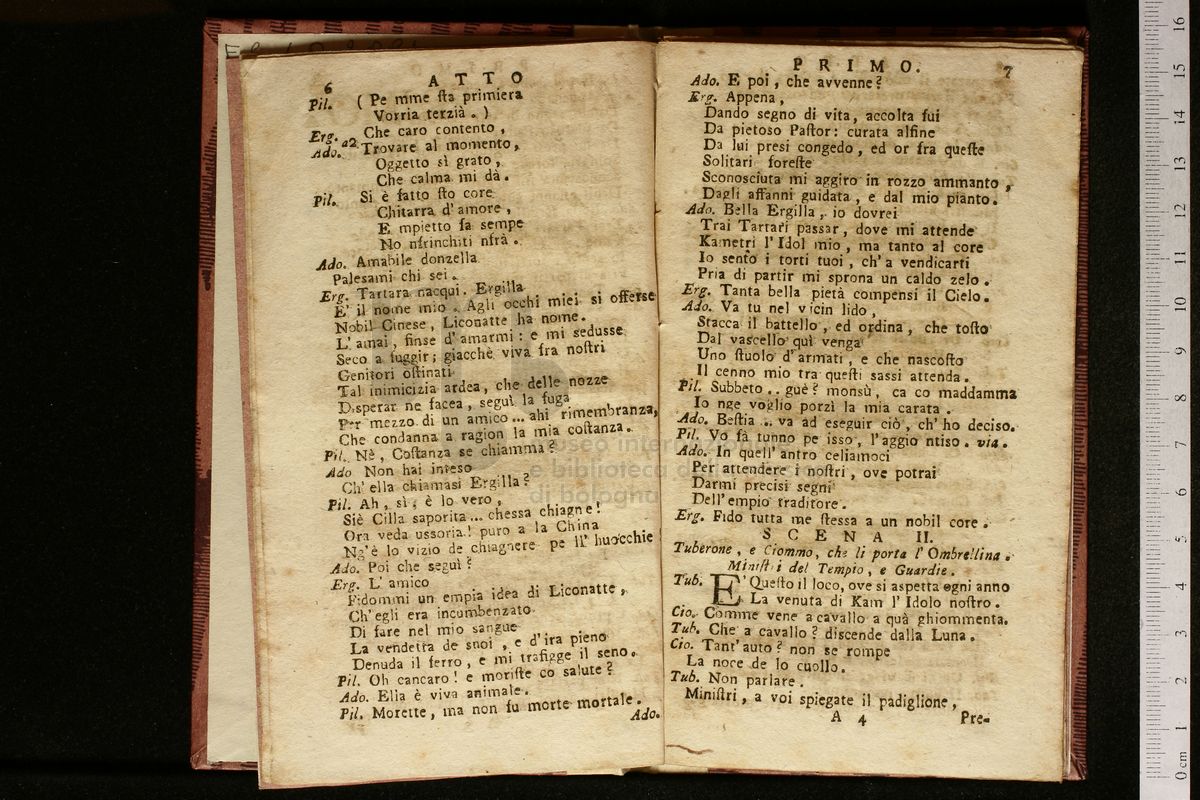 6
ATTO
Pil. ( Pe mme sta primiera
Vorria terzià . )
Erg. Che caro contento ,
Ado. a2 Trovare al momento ,
Oggetto sì grato ,
Che calma mi dà .
Pil. Si è fatto sto core
Chitarra d' amore ,
E mpietto fa sempe
No nfrinchiti nfrà .
Ado. Amabile donzella
Palesami chi sei .
Erg. Tartara nacqui . Ergilla
E' il nome mio . Agli occhi miei si offerse
Nobil Cinese , Liconatte ha nome .
L' amai , finse d' amarmi : e mi sedusse
Seco a fuggir ; giacchè viva fra nostri
Genitori ostinati
Tal inimicizia ardea , che delle nozze
Disperar ne facea , seguì la fuga
Per mezzo di un amico ... ahi rimembranza ,
Che condanna a ragion la mia costanza .
Pil. Nè , Costanza se chiamma ?
Ado Non hai inteso
Ch' ella chiamasi Ergilla ?
Pil. Ah , sì ; è lo vero ,
Siè Cilla saporita ... chessa chiagne !
Ora veda ussoria ! puro a la China
Ng'è lo vizio de chiagnere pe ll' huocchie
Ado. Poi che seguì ?
Erg. L' amico
Fidommi un empia idea di Liconatte ,
Ch' egli era incumbenzato
Di fare nel mio sangue
La vendetta de suoi , e d' ira pieno
Denuda il ferro , e mi trafigge il seno .
Pil. Oh cancaro ! e moriste co salute ?
Ado. Ella è viva animale .
Pil. Morette , ma non fu morte mortale .
Ado.
PRIMO. 7
Ado. E poi , che avvenne ?
Erg. Appena ,
Dando segno di vita , accolta fui
Da pietoso Pastor : curata alfine
Da lui presi congedo , ed or fra queste
Solitari foreste
Sconosciuta mi aggiro in rozzo ammanto ,
Dagli affanni guidata , e dal mio pianto .
Ado. Bella Ergilla , io dovrei
Trai Tartari passar , dove mi attende
Kametri l' Idol mio , ma tanto al core
Io sento i torti tuoi , ch' a vendicarti
Pria di partir mi sprona un caldo zelo .
Erg. Tanta bella pietà compensi il Cielo .
Ado. Va tu nel vicin lido ,
Stacca il battello , ed ordina , che tosto
Dal vascello quì venga
Uno stuolo d' armati , e che nascosto
Il cenno mio tra questi sassi attenda .
Pil. Subbeto .. guè ? monsù , ca co maddamma
Io nge voglio porzì la mia carata .
Ado. Bestia .. va ad eseguir ciò , ch' ho deciso .
Pil. Vo fà tunno pe isso , l' aggio ntiso . via .
Ado. In quell' antro celiamoci
Per attendere i nostri , ove potrai
Darmi precisi segni
Dell' empio traditore .
Erg. Fido tutta me stessa a un nobil core .
SCENA II.
Tuberone , e Ciommo , che li porta l' Ombrellina .
Ministri del Tempio , e Guardie .
Tub. E' Questo il loco , ove si aspetta ogni anno
La venuta di Kam l' Idolo nostro .
Cio. Comme vene a cavallo a quà ghiommenta .
Tub. Che a cavallo ? discende dalla Luna .
Cio. Tant' auto ? non se rompe
La noce de lo cuollo .
Tub. Non parlare .
Ministri , a voi spiegate il padiglione ,
A 4 Pre-
museo internazionale
e biblioteca della
di bologna
0 cm 1 2 3 4 5 6 7 8 9 10 11 12 13 14 15 16